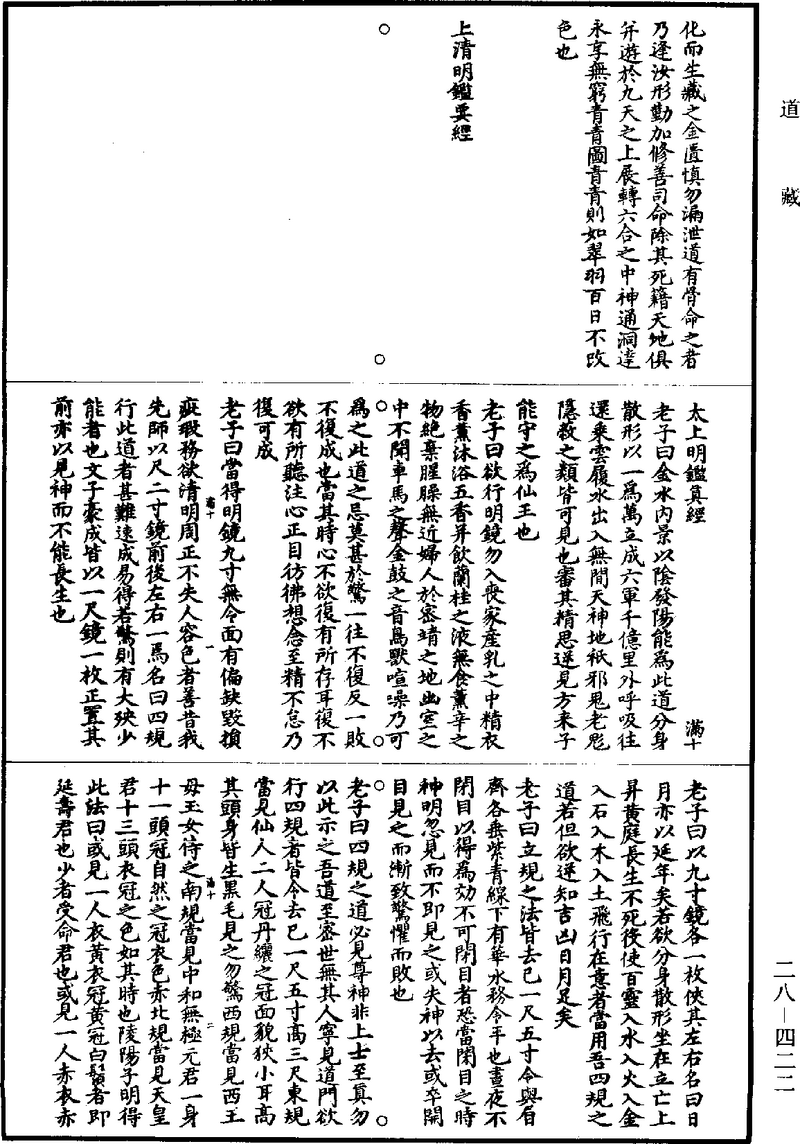 道藏
化而生藏之金匱慎勿漏泄道有骨命之者
乃逢汝形勤加修善司命除其死籍天地俱
并遊於九天之上展轉六合之中神通洞達
永享無窮青青圖青青則如翠羽百日不改
色也
上清明鑑要經
太上明鑑真經
滿十
老子曰金水內景以陰發陽能為此道分身
散形以一為萬立成六軍千億里外呼吸往
還乘雲履水出入無間天神地祇邪鬼老魅
隱敝之類皆可見也審其精思逆見方來子
能守之為仙王也
老子曰欲行明鏡勿入喪家產乳之中精衣
香薰沐浴五香并飲蘭桂之液無食薰辛之
物絕棄腥臊無近婦人於密靖之地幽室之
中不聞車馬之聲金鼓之音鳥獸喧噪乃可
為之此道之忌莫甚於驚一往不復反一敗
不復成也當其時心不欲復有所存耳復不
欲有所聽注心正目彷彿想念至精不怠乃
復可成
老子曰當得明鏡九寸無令面有偏缺毀損
疵瑕務欲清明周正不失人容色者善昔我
滿十
一
先師以尺二寸鏡前後左右一焉名曰四規
行此道者甚難速成易得若驚則有大殃少
能者也文子豪成皆以一尺鏡一枚正置其
前亦以見神而不能長生也
老子曰以九寸鏡各一枚俠其左右名曰日
月亦以延年矣若欲分身散形坐在立亡上
昇黃庭長生不死後使百靈入水入火入金
入石入木入土飛行在意者當用吾四規之
道若但欲逆知吉凶日月足矣
老子曰立規之法皆去己一尺五寸令與眉
齊各無紫青線下有華水務令平也晝夜不
閉目以得為効不可閉目者恐當閉目之時
神明忽見而不即見之或失神以去或卒開
目見之而漸致驚懼而敗也
老子曰四規之道必見尊神非上士至真勿
以此示之吾道至密世無其人寧見道門欲
行四規者皆令去己一尺五寸高三尺東規
當見仙人二人冠丹纚之冠面貌狹小耳高
其頭身皆生黑毛見之勿驚西規當見西王
母玉女侍之南規當見中和無極元君一身
滿十
二
十一頭冠自然之冠衣色赤北規當見天皇
君十三頭衣冠之色如其時也陵陽子明得
此法曰或見一人衣黃衣冠黃冠白鬚者即
延壽君也少者受命君也或見一人赤衣赤
二八－四二二